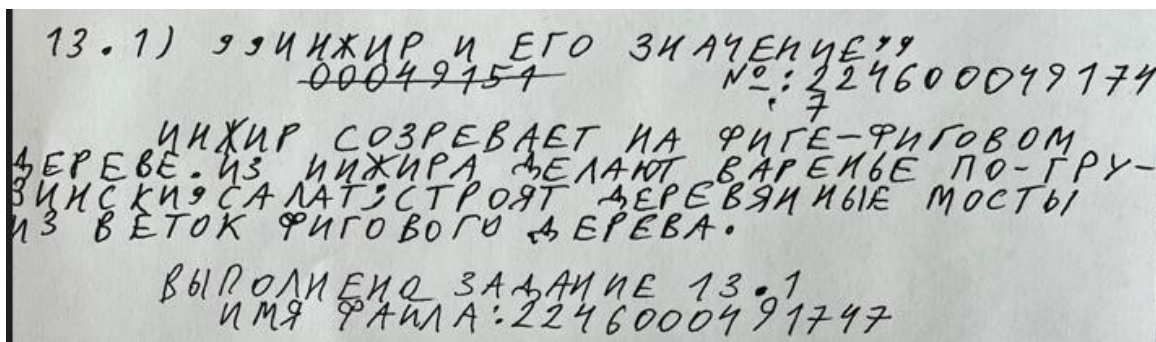 13.1) „ИНЖИР И ЕГО ЗНАЧЕНИЕ”
00049151 №:224600049174
7
ИНЖИР СОЗРЕВАЕТ НА ФИГЕ-ФИГОВОМ
ДЕРЕВЕ. ИЗ ИНЖИРА ДЕЛАЮТ ВАРЕНЬЕ ПО-ГРУ-
ЗИНСКИ, САЛАТ; СТРОЯТ ДЕРЕВЯННЫЕ МОСТЫ
ИЗ ВЕТОК ФИГОВОГО ДЕРЕВА.
ВЫПОЛНЕНО ЗАДАНИЕ 13.1
ИМЯ ФАИЛА:2246000491747